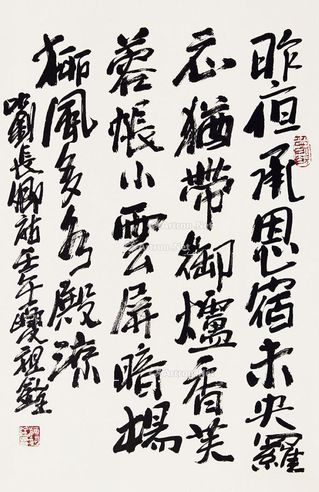 昨夜承恩宿未央羅
衣猶帶御爐香芙
蓉帳小雲屏暗楊
柳風多水殿涼
劉長卿詩壬午祖